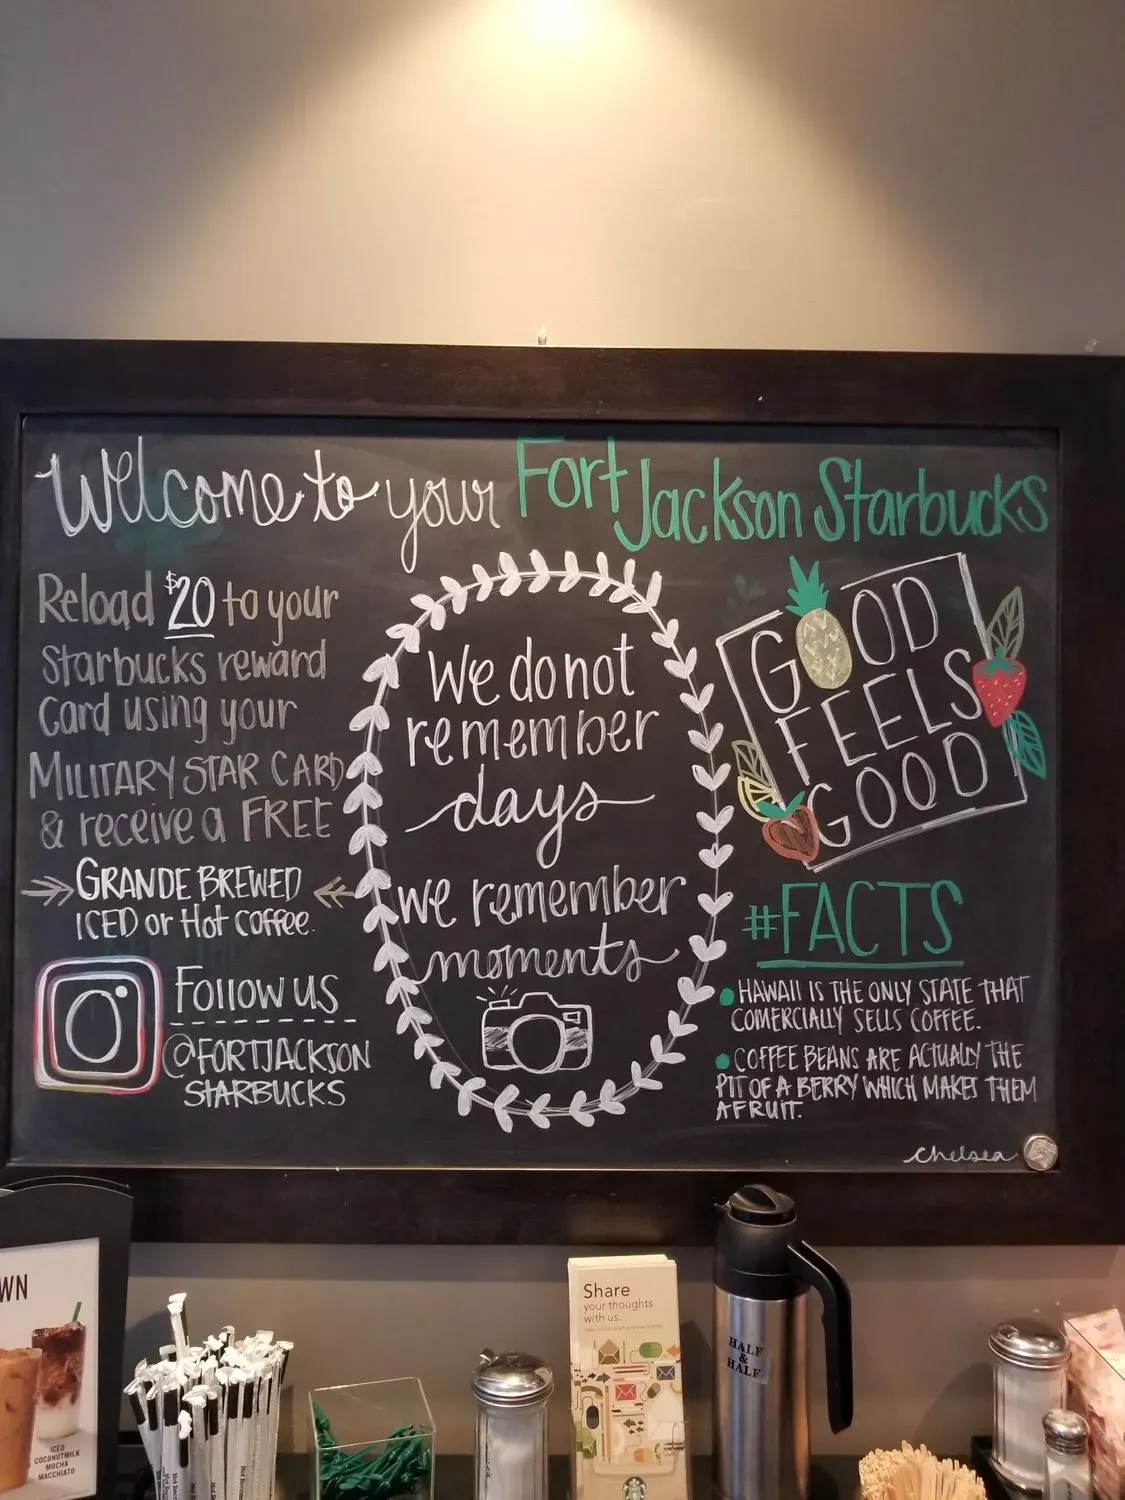 Welcome to your Fort Jackson Starbucks
Reload $20 to your
Starbucks reward
Card using your
MILITARY STAR CARD
& receive a FREE
GRANDE BREWED
ICED or Hot Coffee.
Follow us
@FORTJACKSON
STARBUCKS
We do not
remember
days
we remember
moments
GOOD
FEELS
GOOD
#FACTS
HAWAII IS THE ONLY STATE THAT
COMERCIALLY SELLS COFFEE.
COFFEE BEANS ARE ACTUALLY THE
PIT OF A BERRY WHICH MAKES THEM
A FRUIT.
Chelsea
WN
ICED
COCONUTMILK
MOCHA
MACCHIATO
Share
your thoughts
with us.
HALF
&
HALF